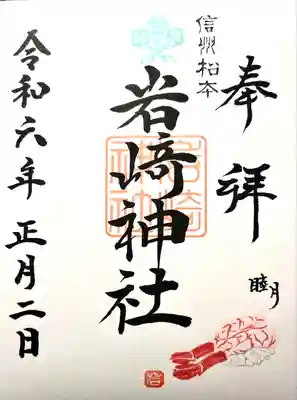 奉拝
睦月
信州松本
岩﨑神社
令和六年 正月二日